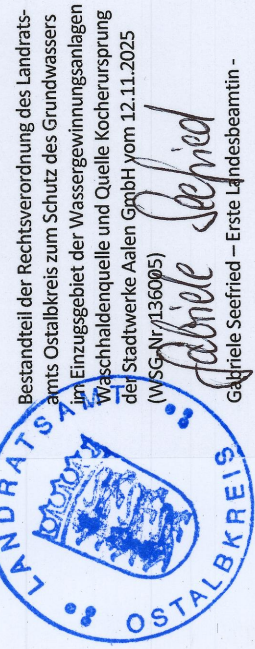 Bestandteil der Rechtsverordnung des Landrats-
amts Ostalbkreis zum Schutz des Grundwassers
im Einzugsgebiet der Wassergewinnungsanlagen
Waschhaldenquelle und Quelle Kocherursprung
der Stadtwerke Aalen GmbH vom 12.11.2025
(WSG-Nr. 136005)
Gabriele Seefried
Gabriele Seefried – Erste Landesbeamtin -
LANDRATSAMT
OSTALBKREIS